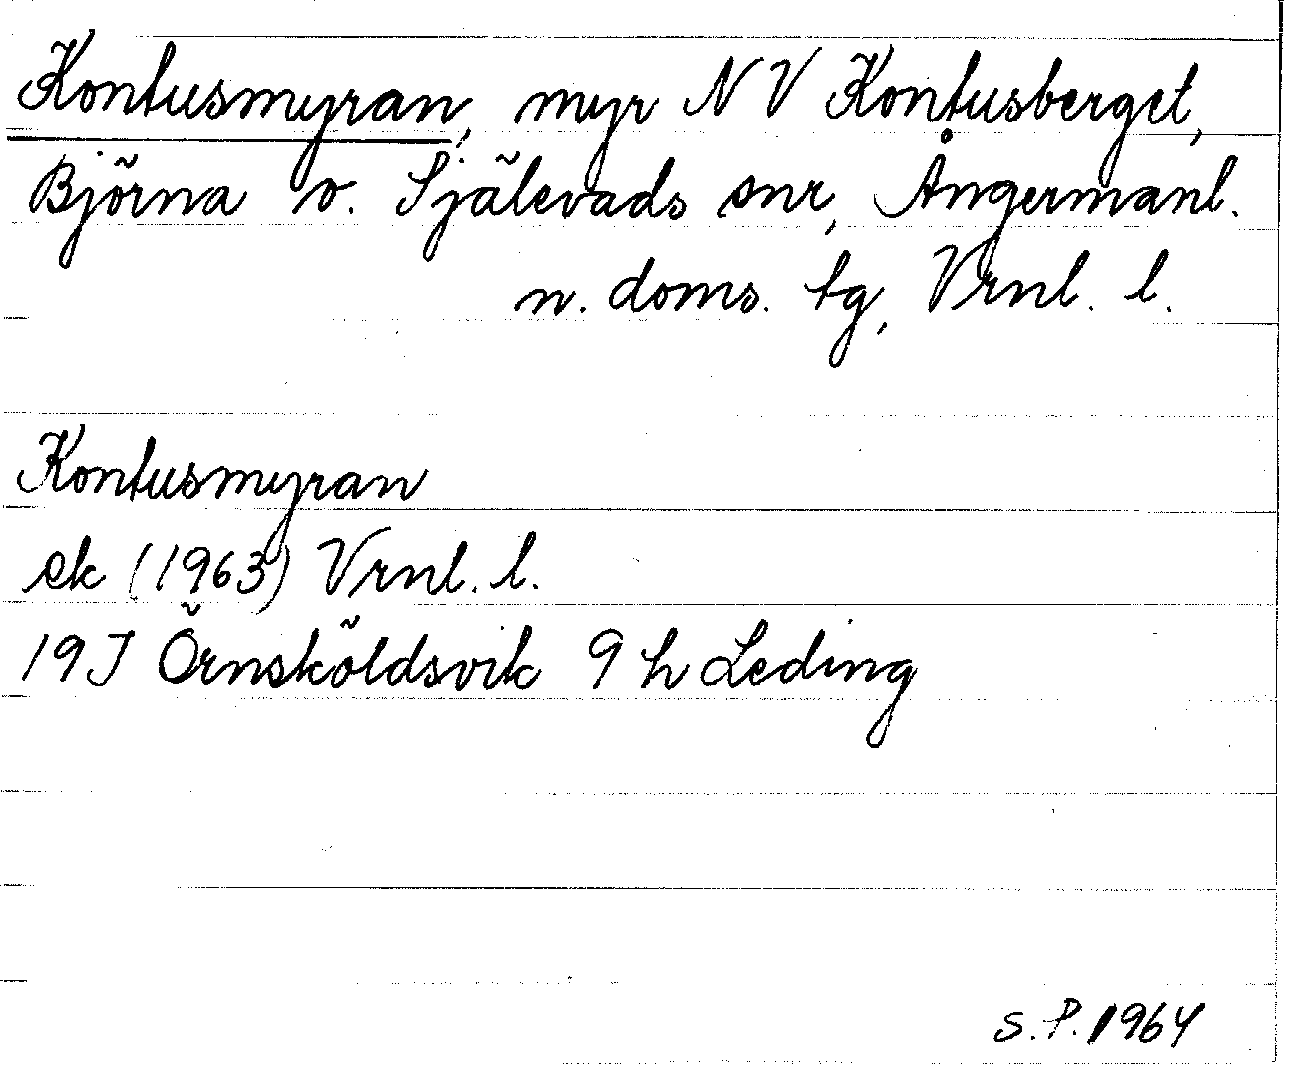 Kontusmyran, myr NV Kontusberget,
Björna o. Själevads snr, Ångermanl.
n. doms. tg, Vrnl. l.
Kontusmyran
ek (1963) Vrnl. l.
19J Örnsköldsvik 9 h Leding
S.P. 1964